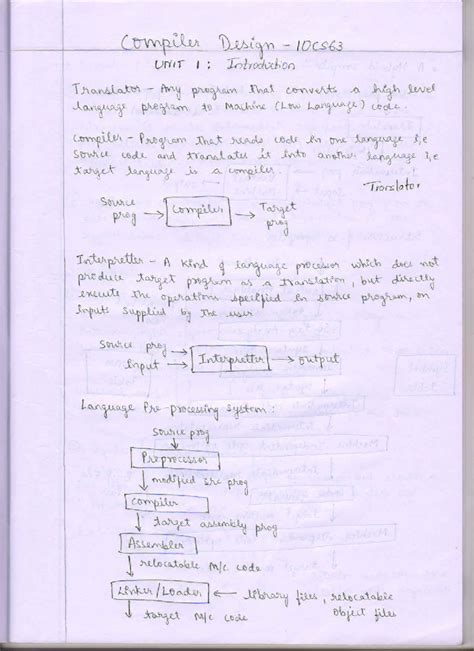 Compiler Design - 10CS63
UNIT 1: Introduction
Translator - Any program that converts a high level
language program to Machine (Low Language) code.
Compiler - Program that reads code in one language i,e
source code and translates it into another language i,e
target language is a compiler.
Translator
Source prog → Compiler → Target prog
Interpretter - A kind of language processor which does not
produce target program as a translation, but directly
execute the operations specified in source program, on
inputs supplied by the user
Source prog →
Input → Interpretter → Output
Language Pre-processing System:
Source prog
Preprocessor
modified src prog
Compiler
target assembly prog
Assembler
relocatable M/c code
Linker/Loader ← library files, relocatable
object files
target M/c code